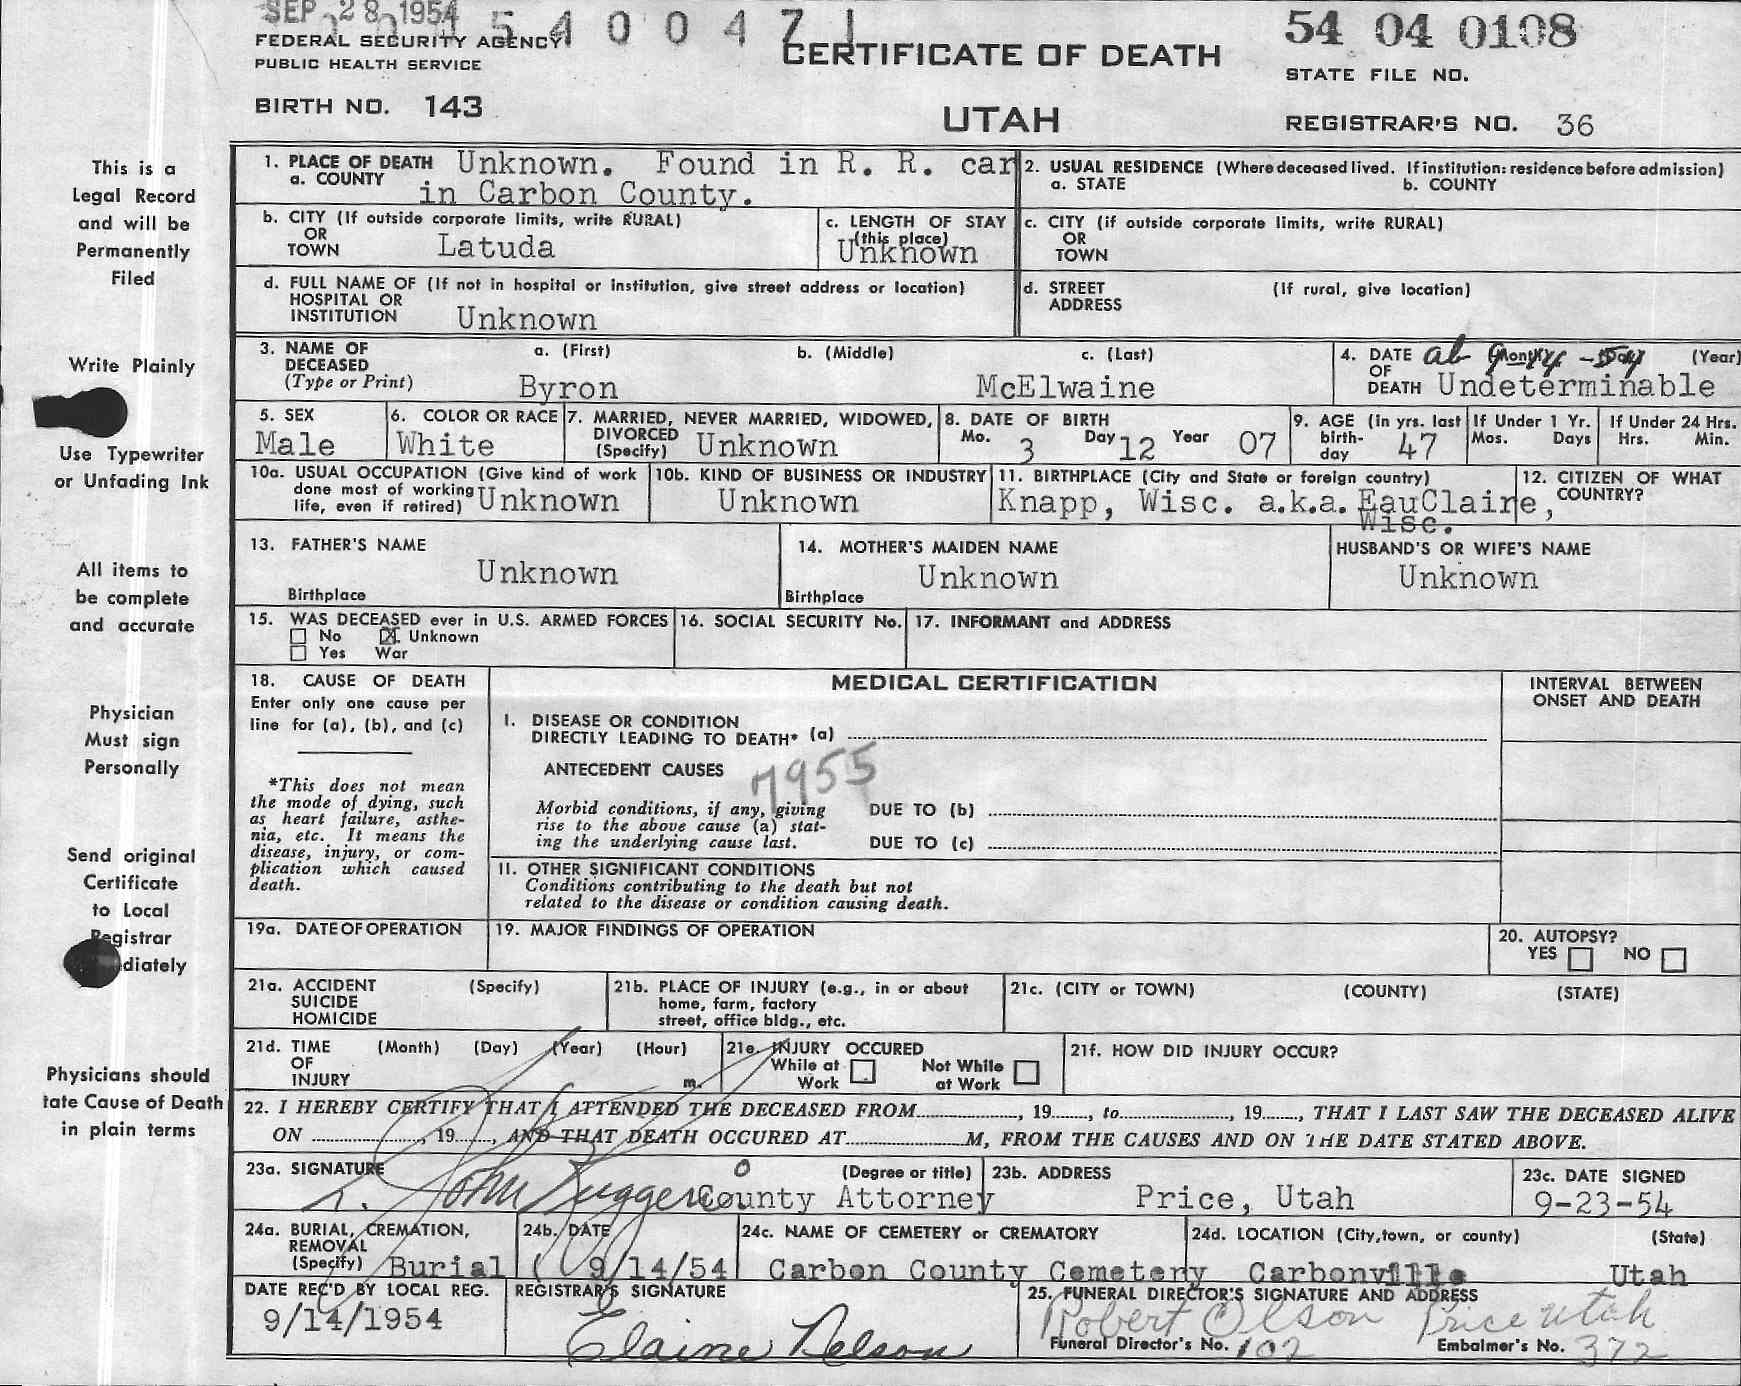 SEP 28 1954 5 4 0 0 4 7 1 54 04 0108
FEDERAL SECURITY AGENCY
PUBLIC HEALTH SERVICE
CERTIFICATE OF DEATH
STATE FILE NO.
BIRTH NO. 143
UTAH
REGISTRAR'S NO. 36
This is a
Legal Record
and will be
Permanently
Filed
Write Plainly
Use Typewriter
or Unfading Ink
All items to
be complete
and accurate
Physician
Must sign
Personally
Send original
Certificate
to Local
Registrar
diately
Physicians should
tate Cause of Death
in plain terms
1. PLACE OF DEATH Unknown. Found in R. R. car
a. COUNTY in Carbon County.
2. USUAL RESIDENCE (Where deceased lived. If institution: residence before admission)
a. STATE b. COUNTY
b. CITY (If outside corporate limits, write RURAL)
OR
TOWN Latuda
c. LENGTH OF STAY
(this place)
Unknown
c. CITY (if outside corporate limits, write RURAL)
OR
TOWN
d. FULL NAME OF (If not in hospital or institution, give street address or location)
HOSPITAL OR
INSTITUTION Unknown
d. STREET (If rural, give location)
ADDRESS
3. NAME OF DECEASED
(Type or Print)
a. (First) b. (Middle) c. (Last)
Byron McElwaine
4. DATE OF DEATH (Month) (Day) (Year)
ab 9-14-54
Undeterminable
5. SEX
Male
6. COLOR OR RACE
White
7. MARRIED, NEVER MARRIED, WIDOWED,
DIVORCED
(Specify) Unknown
8. DATE OF BIRTH
Mo. 3 Day 12 Year 07
9. AGE (in yrs. last
birth-
day 47
If Under 1 Yr.
Mos. Days
If Under 24 Hrs.
Hrs. Min.
10a. USUAL OCCUPATION (Give kind of work
done most of working
life, even if retired) Unknown
10b. KIND OF BUSINESS OR INDUSTRY
Unknown
11. BIRTHPLACE (City and State or foreign country)
Knapp, Wisc. a.k.a. EauClaire,
Wisc.
12. CITIZEN OF WHAT
COUNTRY?
13. FATHER'S NAME
Unknown
Birthplace
14. MOTHER'S MAIDEN NAME
Unknown
Birthplace
HUSBAND'S OR WIFE'S NAME
Unknown
15. WAS DECEASED ever in U.S. ARMED FORCES
No X Unknown
Yes War
16. SOCIAL SECURITY No.
17. INFORMANT and ADDRESS
18. CAUSE OF DEATH
Enter only one cause per
line for (a), (b), and (c)
*This does not mean
the mode of dying, such
as heart failure, asthe-
nia, etc. It means the
disease, injury, or com-
plication which caused
death.
MEDICAL CERTIFICATION
INTERVAL BETWEEN
ONSET AND DEATH
I. DISEASE OR CONDITION
DIRECTLY LEADING TO DEATH* (a)
ANTECEDENT CAUSES 7955
Morbid conditions, if any, giving DUE TO (b)
rise to the above cause (a) stat-
ing the underlying cause last. DUE TO (c)
II. OTHER SIGNIFICANT CONDITIONS
Conditions contributing to the death but not
related to the disease or condition causing death.
19a. DATE OF OPERATION
19. MAJOR FINDINGS OF OPERATION
20. AUTOPSY?
YES NO
21a. ACCIDENT (Specify)
SUICIDE
HOMICIDE
21b. PLACE OF INJURY (e.g., in or about
home, farm, factory
street, office bldg., etc.
21c. (CITY or TOWN) (COUNTY) (STATE)
21d. TIME (Month) (Day) (Year) (Hour)
OF
INJURY m.
21e. INJURY OCCURED
While at Work Not While at Work
21f. HOW DID INJURY OCCUR?
22. I HEREBY CERTIFY THAT I ATTENDED THE DECEASED FROM, 19, to, 19, THAT I LAST SAW THE DECEASED ALIVE
ON, 19, AND THAT DEATH OCCURED AT M, FROM THE CAUSES AND ON THE DATE STATED ABOVE.
23a. SIGNATURE (Degree or title)
County Attorney
23b. ADDRESS
Price, Utah
23c. DATE SIGNED
9-23-54
24a. BURIAL, CREMATION,
REMOVAL
(Specify) Burial
24b. DATE
9/14/54
24c. NAME OF CEMETERY or CREMATORY
Carbon County Cemetery
24d. LOCATION (City, town, or county) (State)
Carbonville Utah
DATE REC'D BY LOCAL REG.
9/14/1954
REGISTRAR'S SIGNATURE
Elaine Nelson
25. FUNERAL DIRECTOR'S SIGNATURE AND ADDRESS
Robert Olson Price Utah
Funeral Director's No. 102 Embalmer's No. 372